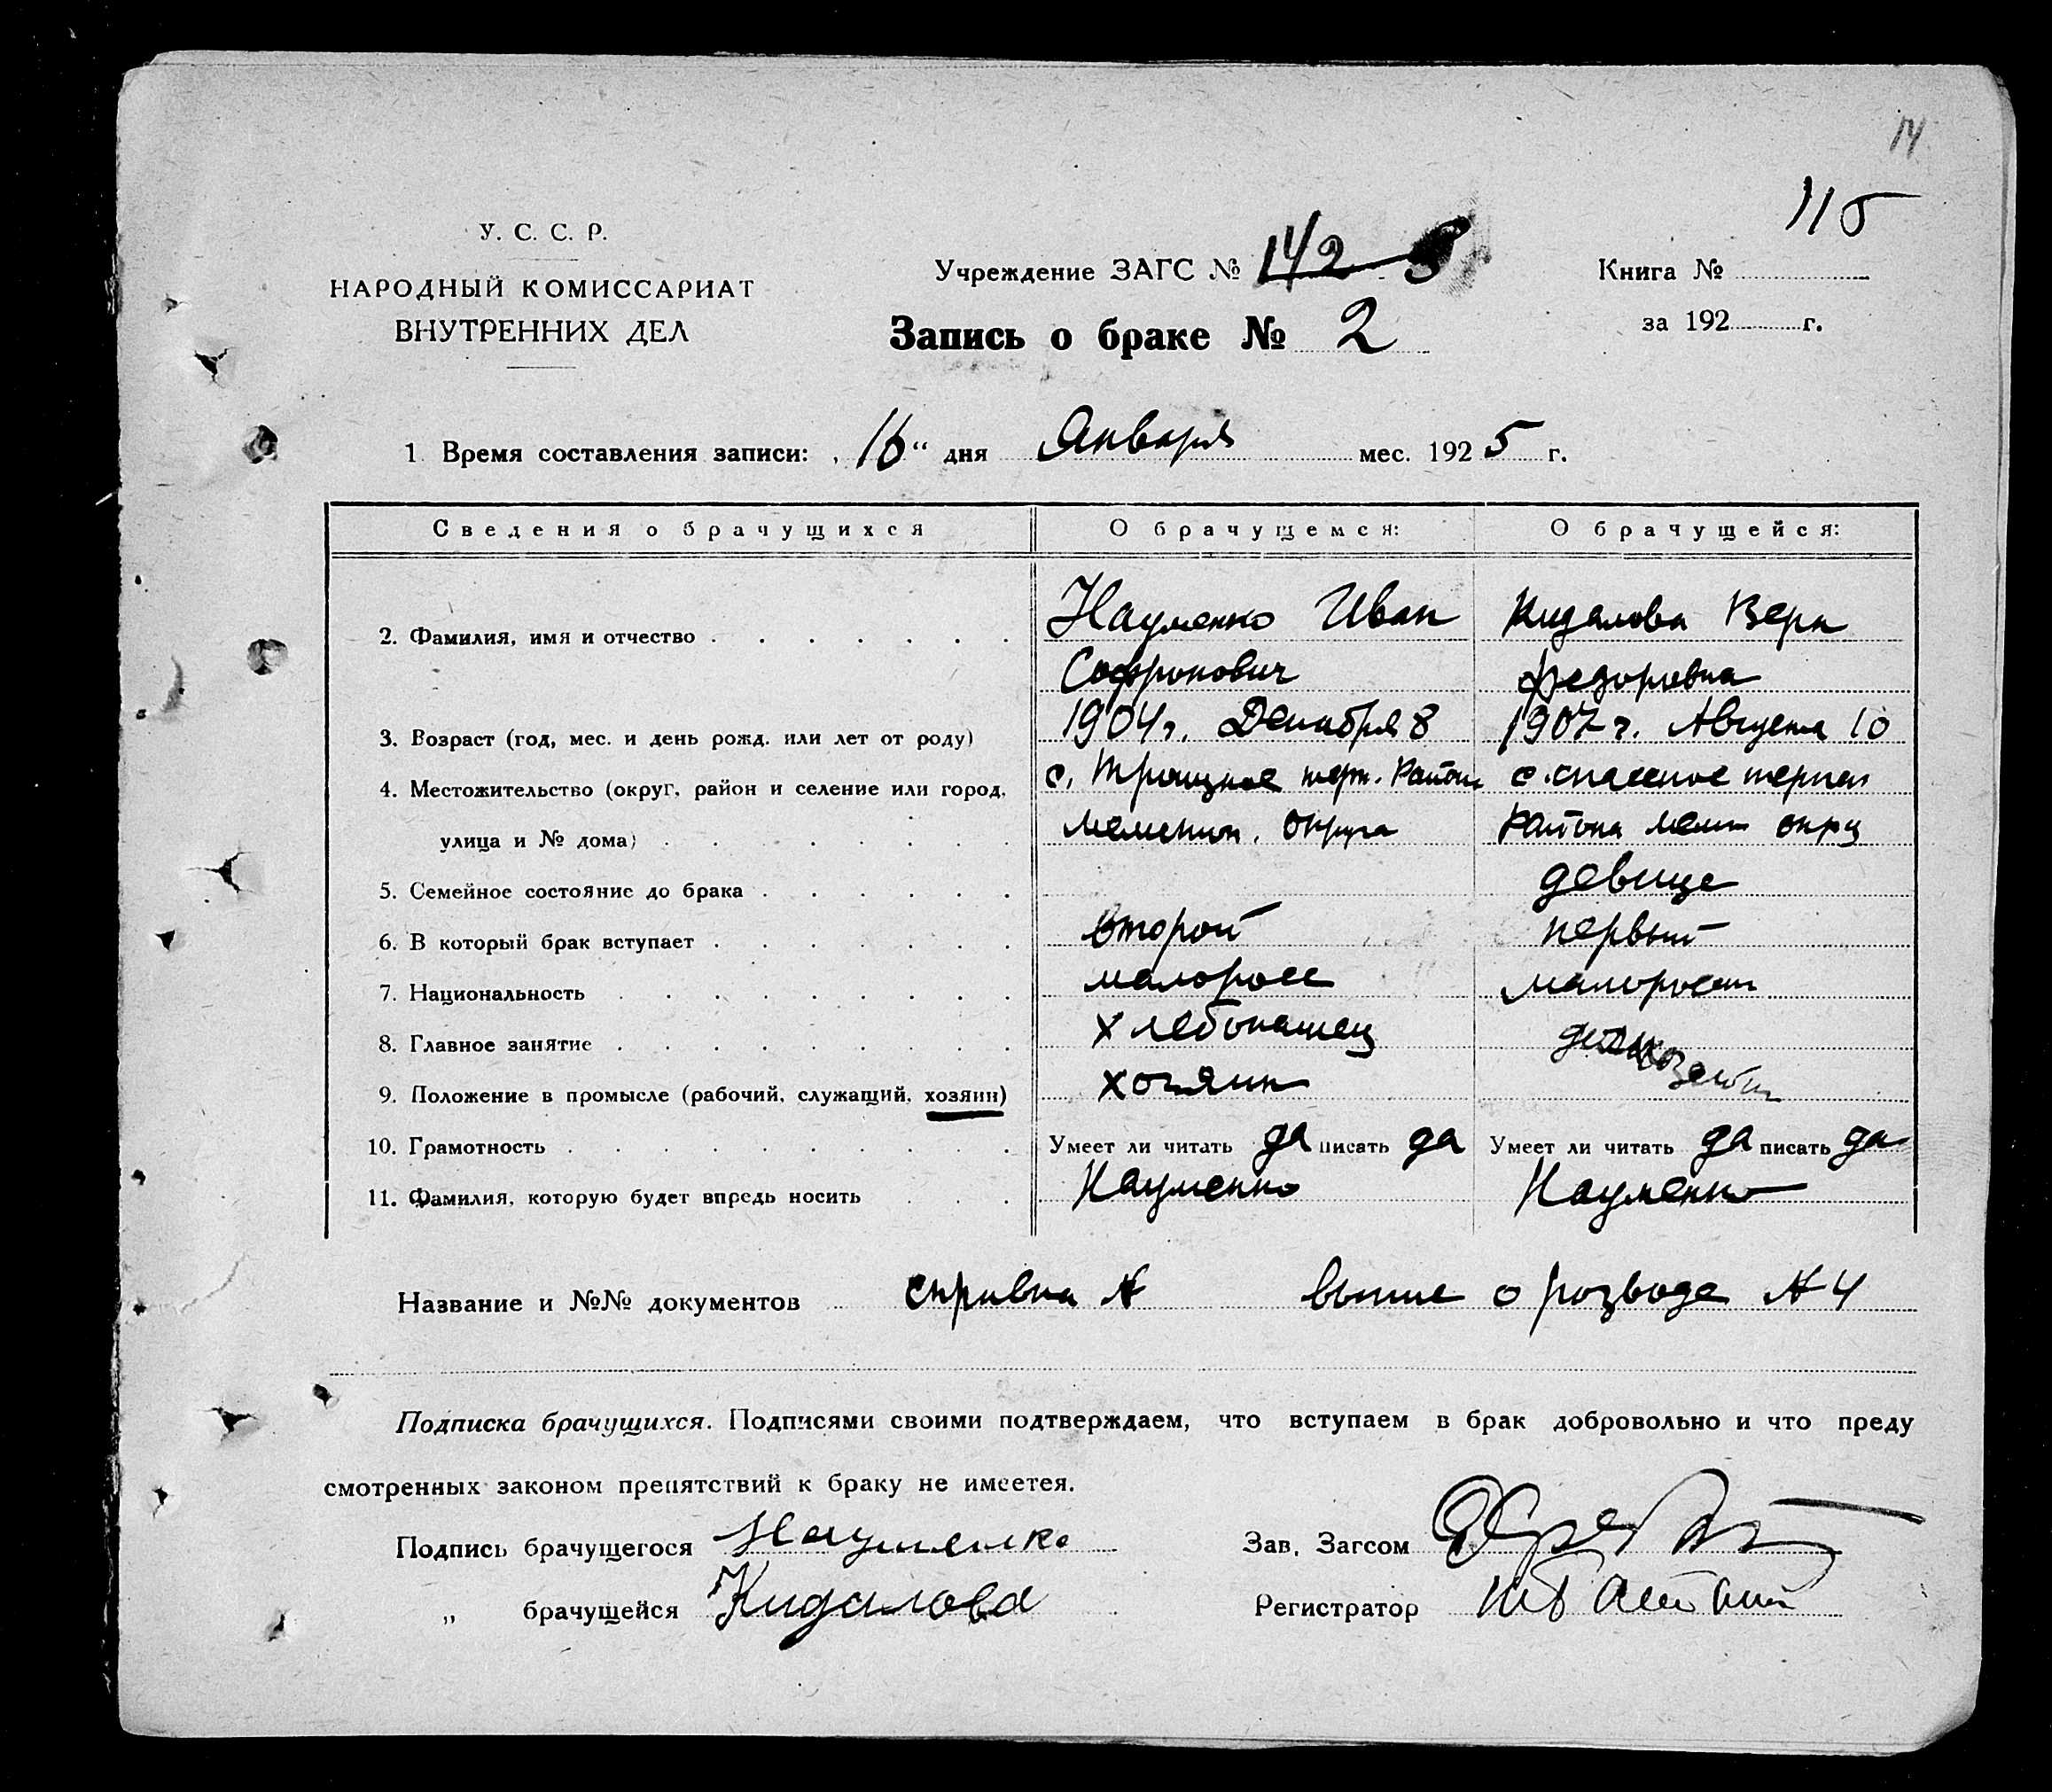 14
115
У. С. С. Р.
НАРОДНЫЙ КОМИССАРИАТ
ВНУТРЕННИХ ДЕЛ
Учреждение ЗАГС № 142
Книга №
за 192 г.
Запись о браке № 2
1 Время составления записи: „ 16 “ дня Января мес. 1925 г.
Сведения о брачущихся О брачущемся: О брачущейся:
2. Фамилия, имя и отчество Науменко Иван Кидалова Вера
Софронович Федоровна
3. Возраст (год, мес. и день рожд. или лет от роду) 1904 г. Декабря 8 1907 г. Августа 10
4. Местожительство (округ, район и селение или город, с. Троицкое терп. Район с. спасское терпен
улица и № дома) мелитоп. округа Района мелит округ
5. Семейное состояние до брака девица
6. В который брак вступает второй первый
7. Национальность малоросс малоросси
8. Главное занятие хлебопашец домхозяйн
9. Положение в промысле (рабочий, служащий, хозяин) хозяин
10. Грамотность Умеет ли читать да писать да Умеет ли читать да писать да
11. Фамилия, которую будет впредь носить Науменко Науменко
Название и №№ документов справка № выше о розводе № 4
Подписка брачущихся. Подписями своими подтверждаем, что вступаем в брак добровольно и что преду
смотренных законом препятствий к браку не имеетея.
Подпись брачущегося Науменко Зав. Загсом
„ брачущейся Кидалова Регистратор